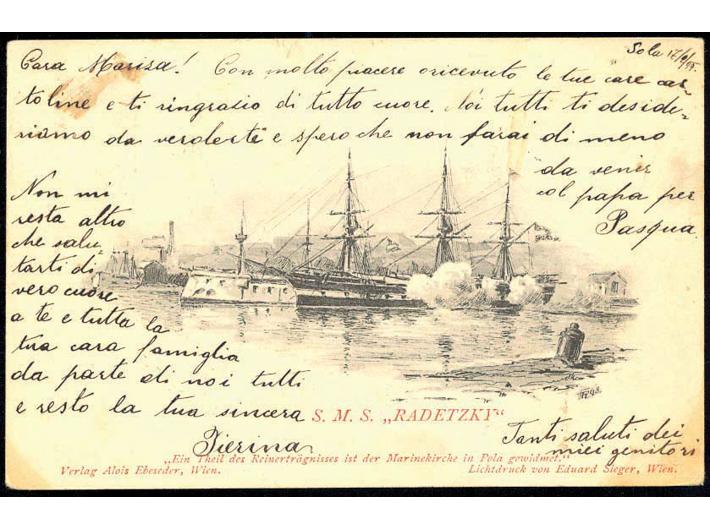 Pola 17/3 98.
Cara Marisa! Con molto piacere o ricevuto le tue care car-
toline e ti ringrasio di tutto cuore. Noi tutti ti deside-
riamo da verderte e spero che non farai di meno
da venir
col papa per
Pasqua.
Non mi
resta altro
che salu-
tarti di
vero cuore
a te e tutta la
tua cara famiglia
da parte di noi tutti
e resto la tua sincera
Pierina
S. M. S. „RADETZKY“
Tanti saluti dei
miei genitori
„Ein Theil des Reinerträgnisses ist der Marinekirche in Pola gewidmet.“
Verlag Alois Ebeseder, Wien.
Lichtdruck von Eduard Sieger, Wien.